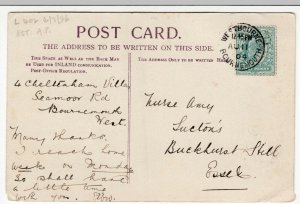 POST CARD.
THE ADDRESS TO BE WRITTEN ON THIS SIDE.
THIS SPACE AS WELL AS THE BACK MAY
BE USED FOR INLAND COMMUNICATION.
POST-OFFICE REGULATION.
WESTBOURNE
AU 11
04
BOURNEMOUTH
4 Cheltenham Villas
Seamoor Rd
Bournemouth
West.
Many thanks,
I reach home
week on Monday
So shall have
a little time
with you.
Nurse Amy
Sucton's
Buckhurst Hill
Essex